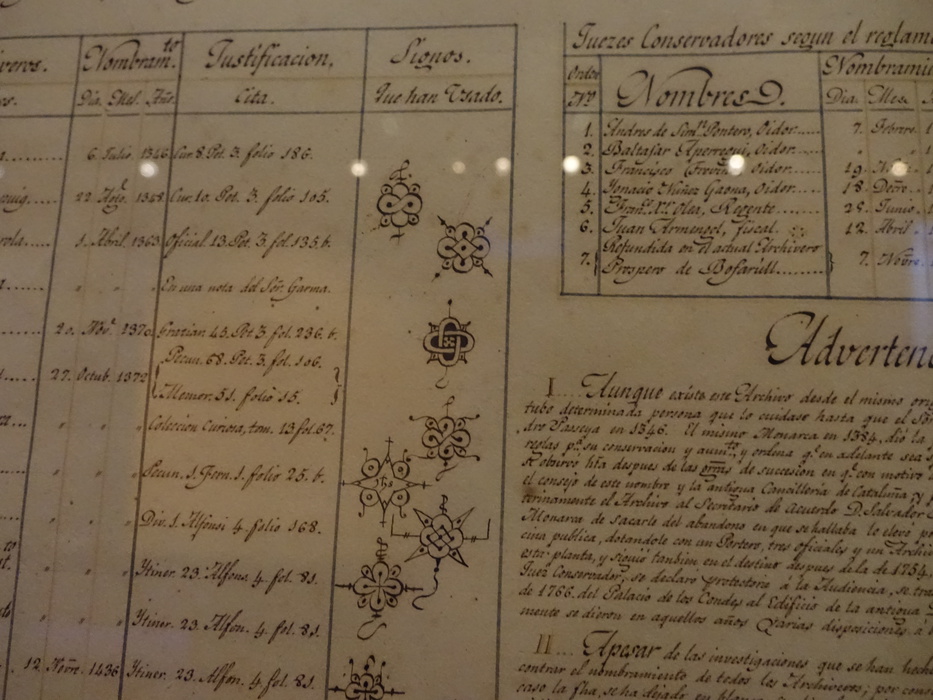 Nombram.to Justificacion, Signos.
Dia. Mes. Año. Cita. Que han Usado.
6. Julio. 1346 Cur. 8. Pot. 3. folio 186.
22. Agto. 1348. Cur. 10. Pot. 3. folio 105.
1. Abril. 1363. Oficial. 13. Pot. 3. fol. 135. b.
En una nota del Sor. Garma.
20. Nov. 1370. Gratiar. 43. Pot 3. fol. 236. b.
27. Octub. 1372 Pecun. 68. Pot. 3. fol. 106.
Memor. 51. folio 15.
Coleccion Curiosa, tom. 13 fol. 67.
Pecun. 1. Fern. 1. folio 25. b.
Div. 1. Alfonsi 4. folio 168.
Itiner. 23. Alfons. 4. fol. 81.
Itiner. 23. Alfon. 4. fol. 81.
12. Novre. 1436 Itiner. 23. Alfon. 4. fol. 81.
Juezes Conservadores segun el reglam
Orden
Nº. Nombres D. Nombrami
Dia. Mes.
1. Andres de Simn. Pontero, Oidor..... 7. Febrero.
2. Baltasar Aperregui, Oidor.....
3. Francisco Oidor..... 19.
4. Ignacio Nuñez Gaona, Oidor..... 18. Decre.
5. Franco. Xr. Olea, Regente..... 28. Junio.
6. Juan Armengol, fiscal. 12. Abril.
7. Refundida en el actual Archivero
Prospero de Bofarull..... 7. Novre.
Advertenc
I... Aunque existe este Archivo desde el mismo orig
tubo determinada persona que lo cuidase hasta que el Sor
dro Passeya en 1346. El mismo Monarca en 1384, dió la
reglas pa. su conservacion y aumto. y ordena q. en adelante sea
de sucesion en q. con motivo
el consejo de este nombre y la antigua Cancilleria de Cataluña
el Archivo al Secretario de Acuerdo D. Salvador
Monarca de sacarle del abandono en que se hallaba, le elevó
cina publica, dotandole con un Portero, tres oficiales y un Archiv
esta planta, y siguió tambien en el destino despues de la de 1754.
Juez Conservador, se declaro Protectorio á la Audiencia, se tra
de 1766. del Palacio de los Condes al Edificio de la antigua
mente se dieron en aquellos años varias disposiciones á
II... Apesar de las investigaciones que se han hech
contrar el nombramiento de todos los Archiveros, por cons
caso la fha, se ha dejado en blanco